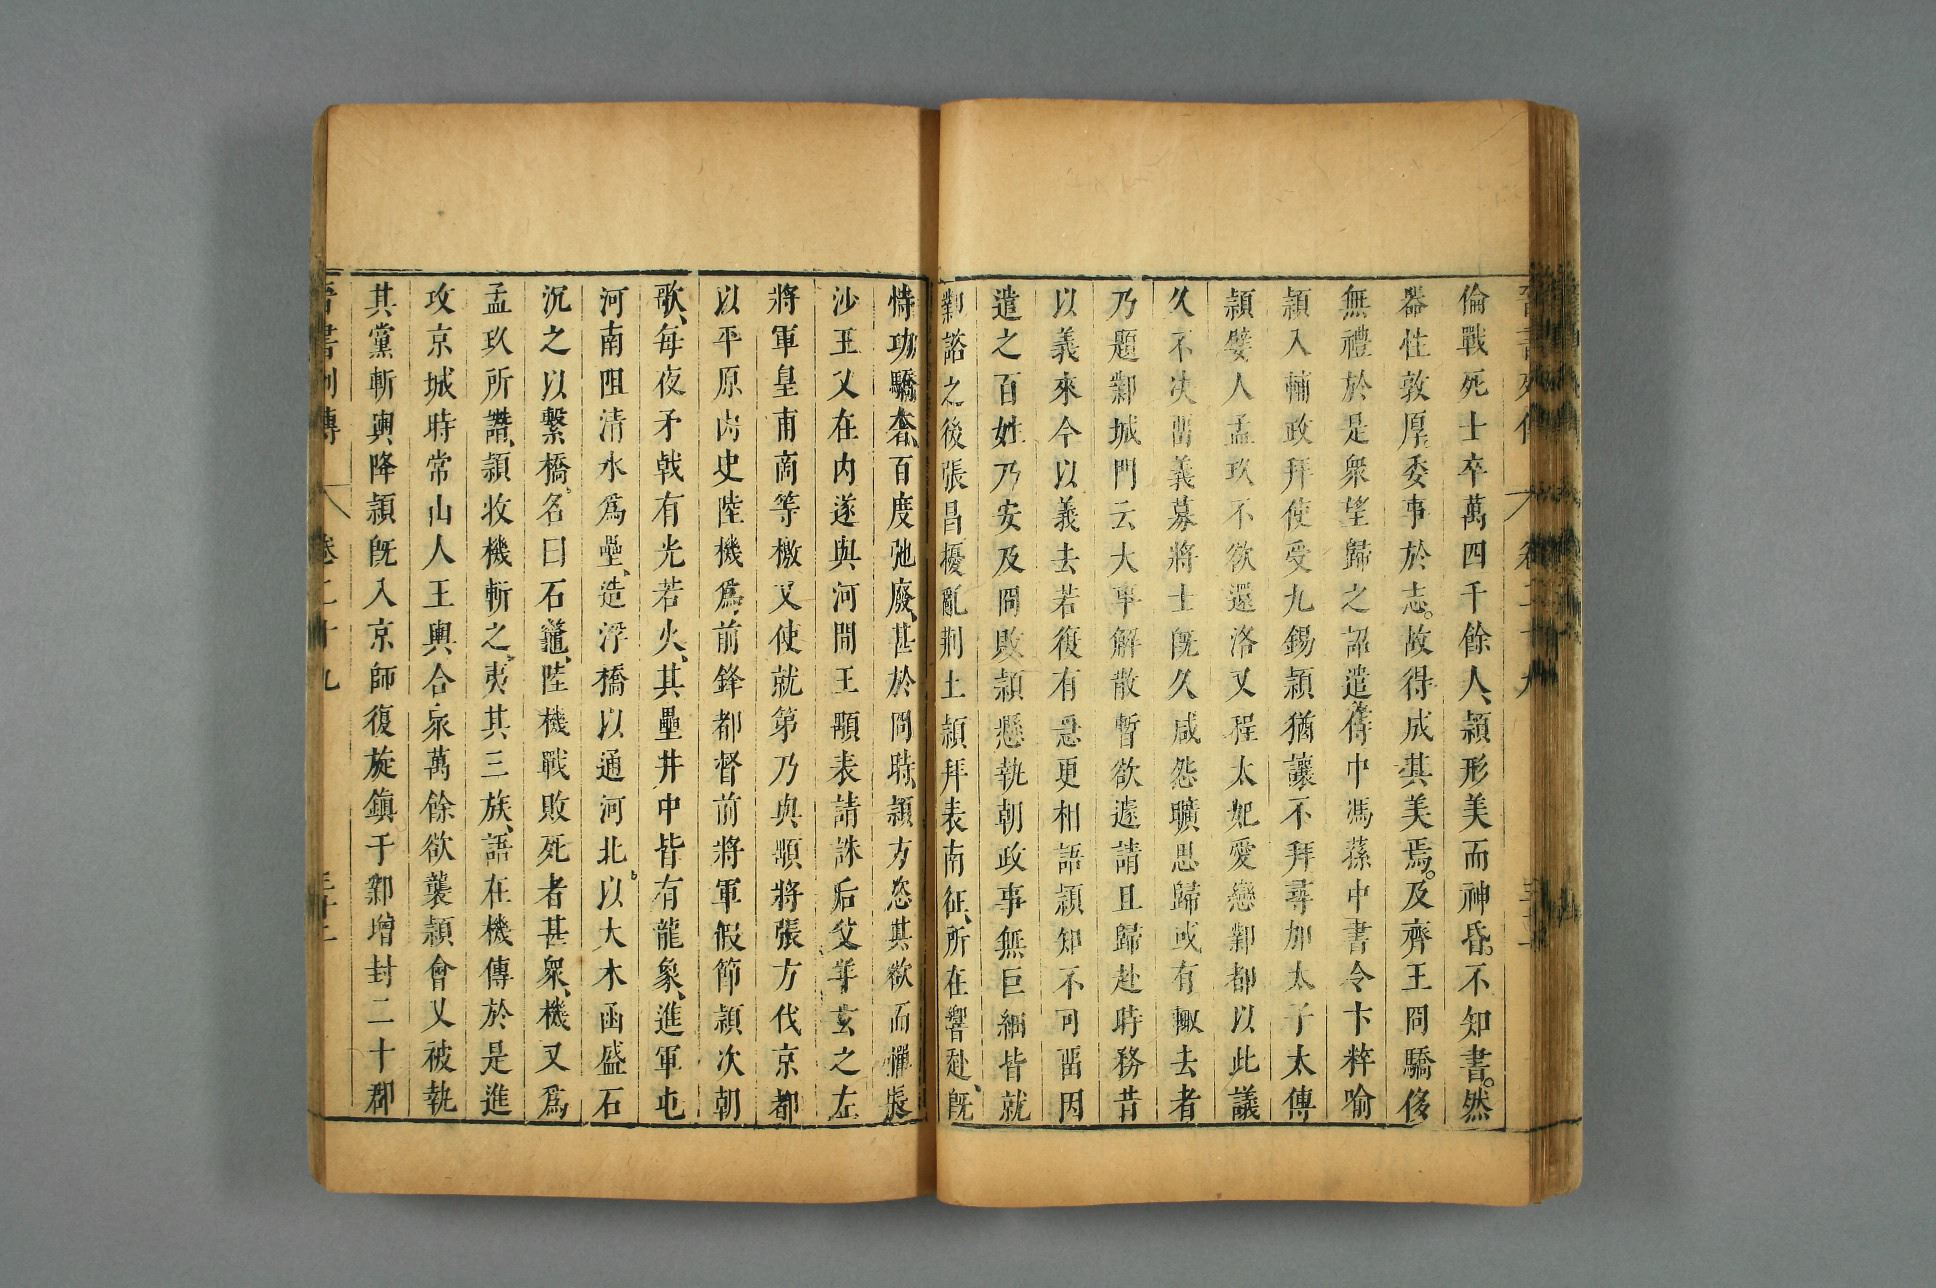 晉書列傳 卷二十九
倫戰死士卒萬四千餘人、頴形美而神昏。不知書。然
器性敦厚。委事於志。故得成其美焉。及齊王冏驕侈
無禮於是衆望歸之詔遣侍中馮蓀中書令卞粹喻
頴入輔政拜使受九錫頴猶讓不拜尋加太子太傅
頴嬖人孟玖不欲還洛又程太妃愛戀鄴都以此議
久不决畱義募將士旣久咸怨曠思歸或有輙去者
乃題鄴城門云大事解散蹔欲遽請且歸赴時務昔
以義來今以義去若復有急更相語頴知不可畱因
遣之百姓乃安及冏敗頴懸執朝政事無巨細皆就
鄴諮之後張昌擾亂荆土頴拜表南征、所在響赴、旣
恃功驕奢、百度弛廢、甚於冏時、頴方恣其欲而憚長
沙王乂在内遂與河間王顒表請誅后父羊玄之左
將軍皇甫商等檄乂使就第乃與顒將張方伐京都
以平原内史陸機爲前鋒都督前將軍假節頴次朝
歌、每夜矛戟有光若火、其壘井中皆有龍象、進軍屯
河南阻清水爲壘、造浮橋以通河北。以大木函盛石
沉之以繫橋。名曰石鼈、陸機戰敗死者甚衆、機又爲
孟玖所譖、頴收機斬之、夷其三族、語在機傳於是進
攻京城時常山人王輿合衆萬餘欲襲頴會乂被執
其黨斬輿降頴旣入京師復旋鎮于鄴增封二十郡
晉書列傳 卷二十九 三十二